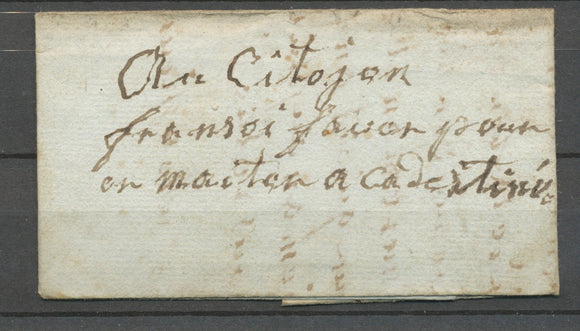 Au Citojen
fransoi faver pour
en maiton a cade